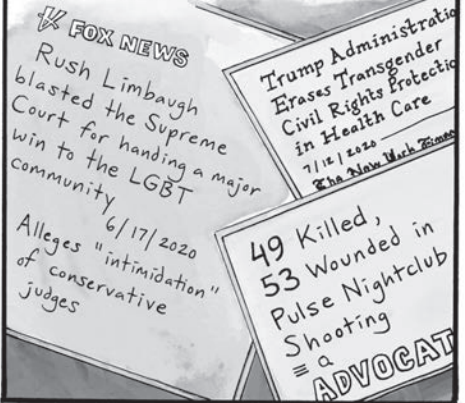 FOX NEWS
Rush Limbaugh
blasted the Supreme
Court for handing a major
win to the LGBT
community
6/17/2020
Alleges "intimidation"
of conservative
judges
Trump Administratio
Erases Transgender
Civil Rights Protectio
in Health Care
7/12/2020
The New Work Times
49 Killed,
53 Wounded in
Pulse Nightclub
Shooting
a
ADVOCAT